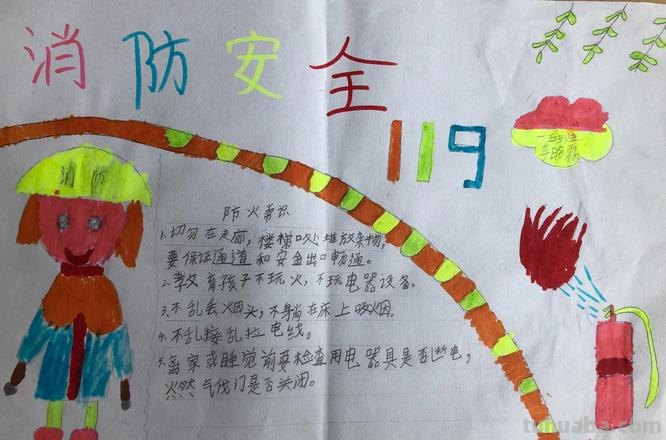 消防安全
119
消防
防火常识
1.切勿在走廊,楼梯口处堆放杂物,
要保证通道和安全出口畅通。
2.教育孩子不玩火,不玩电器设备。
3.不乱丢烟头,不躺在床上吸烟。
4.不乱接乱拉电线。
5.离家或睡觉前要检查用电器具是否断电,
火然气伐门是否关闭。
tuhuabao.com